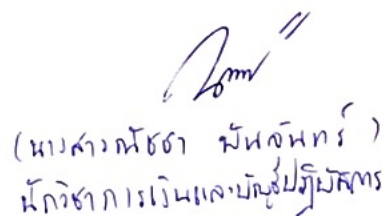 (นางสาวณัชชา พันจันทร์)
นักวิชาการเงินและบัญชีปฏิบัติการ